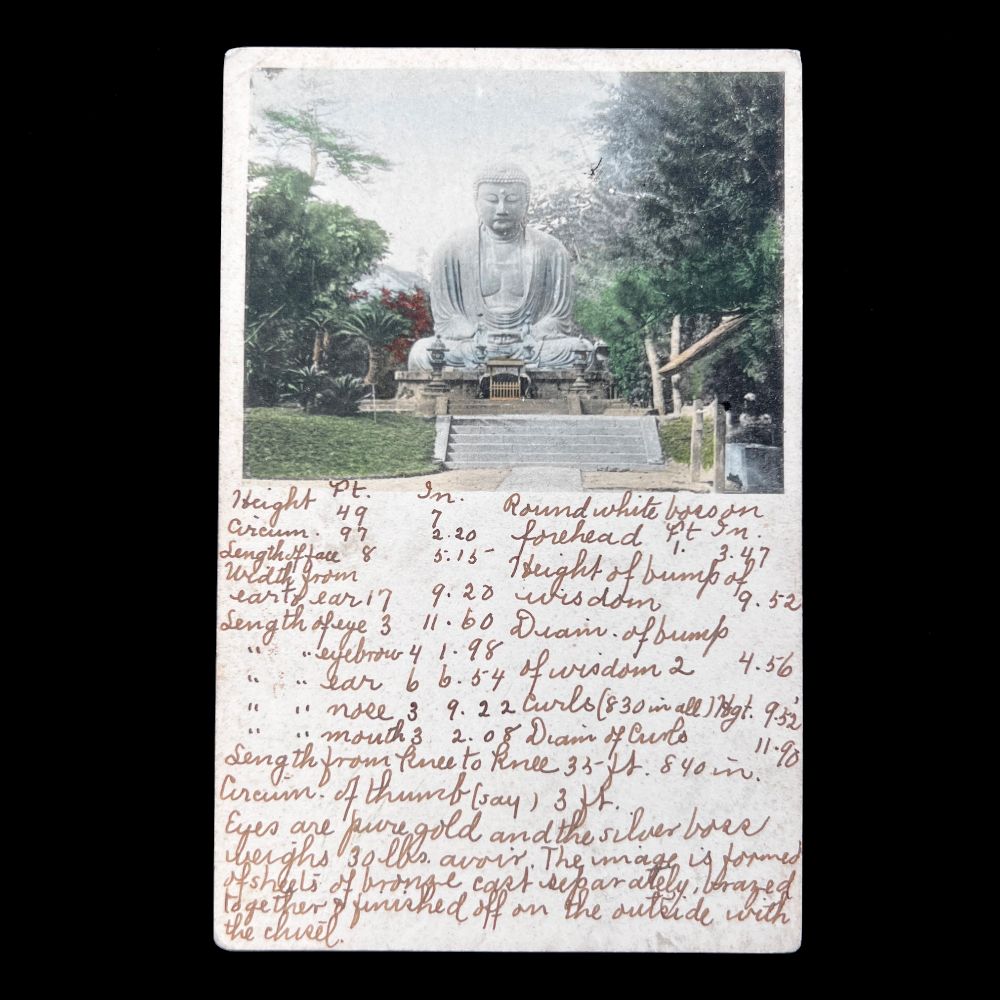 Height Ft. In.
49 7
Circum. 97 2.20
Length of face 8 5.15
Width from
ear to ear 17 9.20
Length of eye 3 11.60
" " eyebrow 4 1.98
" " ear 6 6.54
" " nose 3 9.22
" " mouth 3 2.08
Round white boss on
forehead Ft. In.
1. 3.47
Height of bump of
wisdom 9.52
Diam. of bump
of wisdom 2 4.56
Curls (830 in all) Hgt. 9.52
Diam of Curls 11.90
Length from Knee to Knee 35 ft. 840 in.
Circum. of thumb (say) 3 ft.
Eyes are pure gold and the silver boss
weighs 30 lbs. avoir. The image is formed
of sheets of bronze cast separately, brazed
together & finished off on the outside with
the chisel.